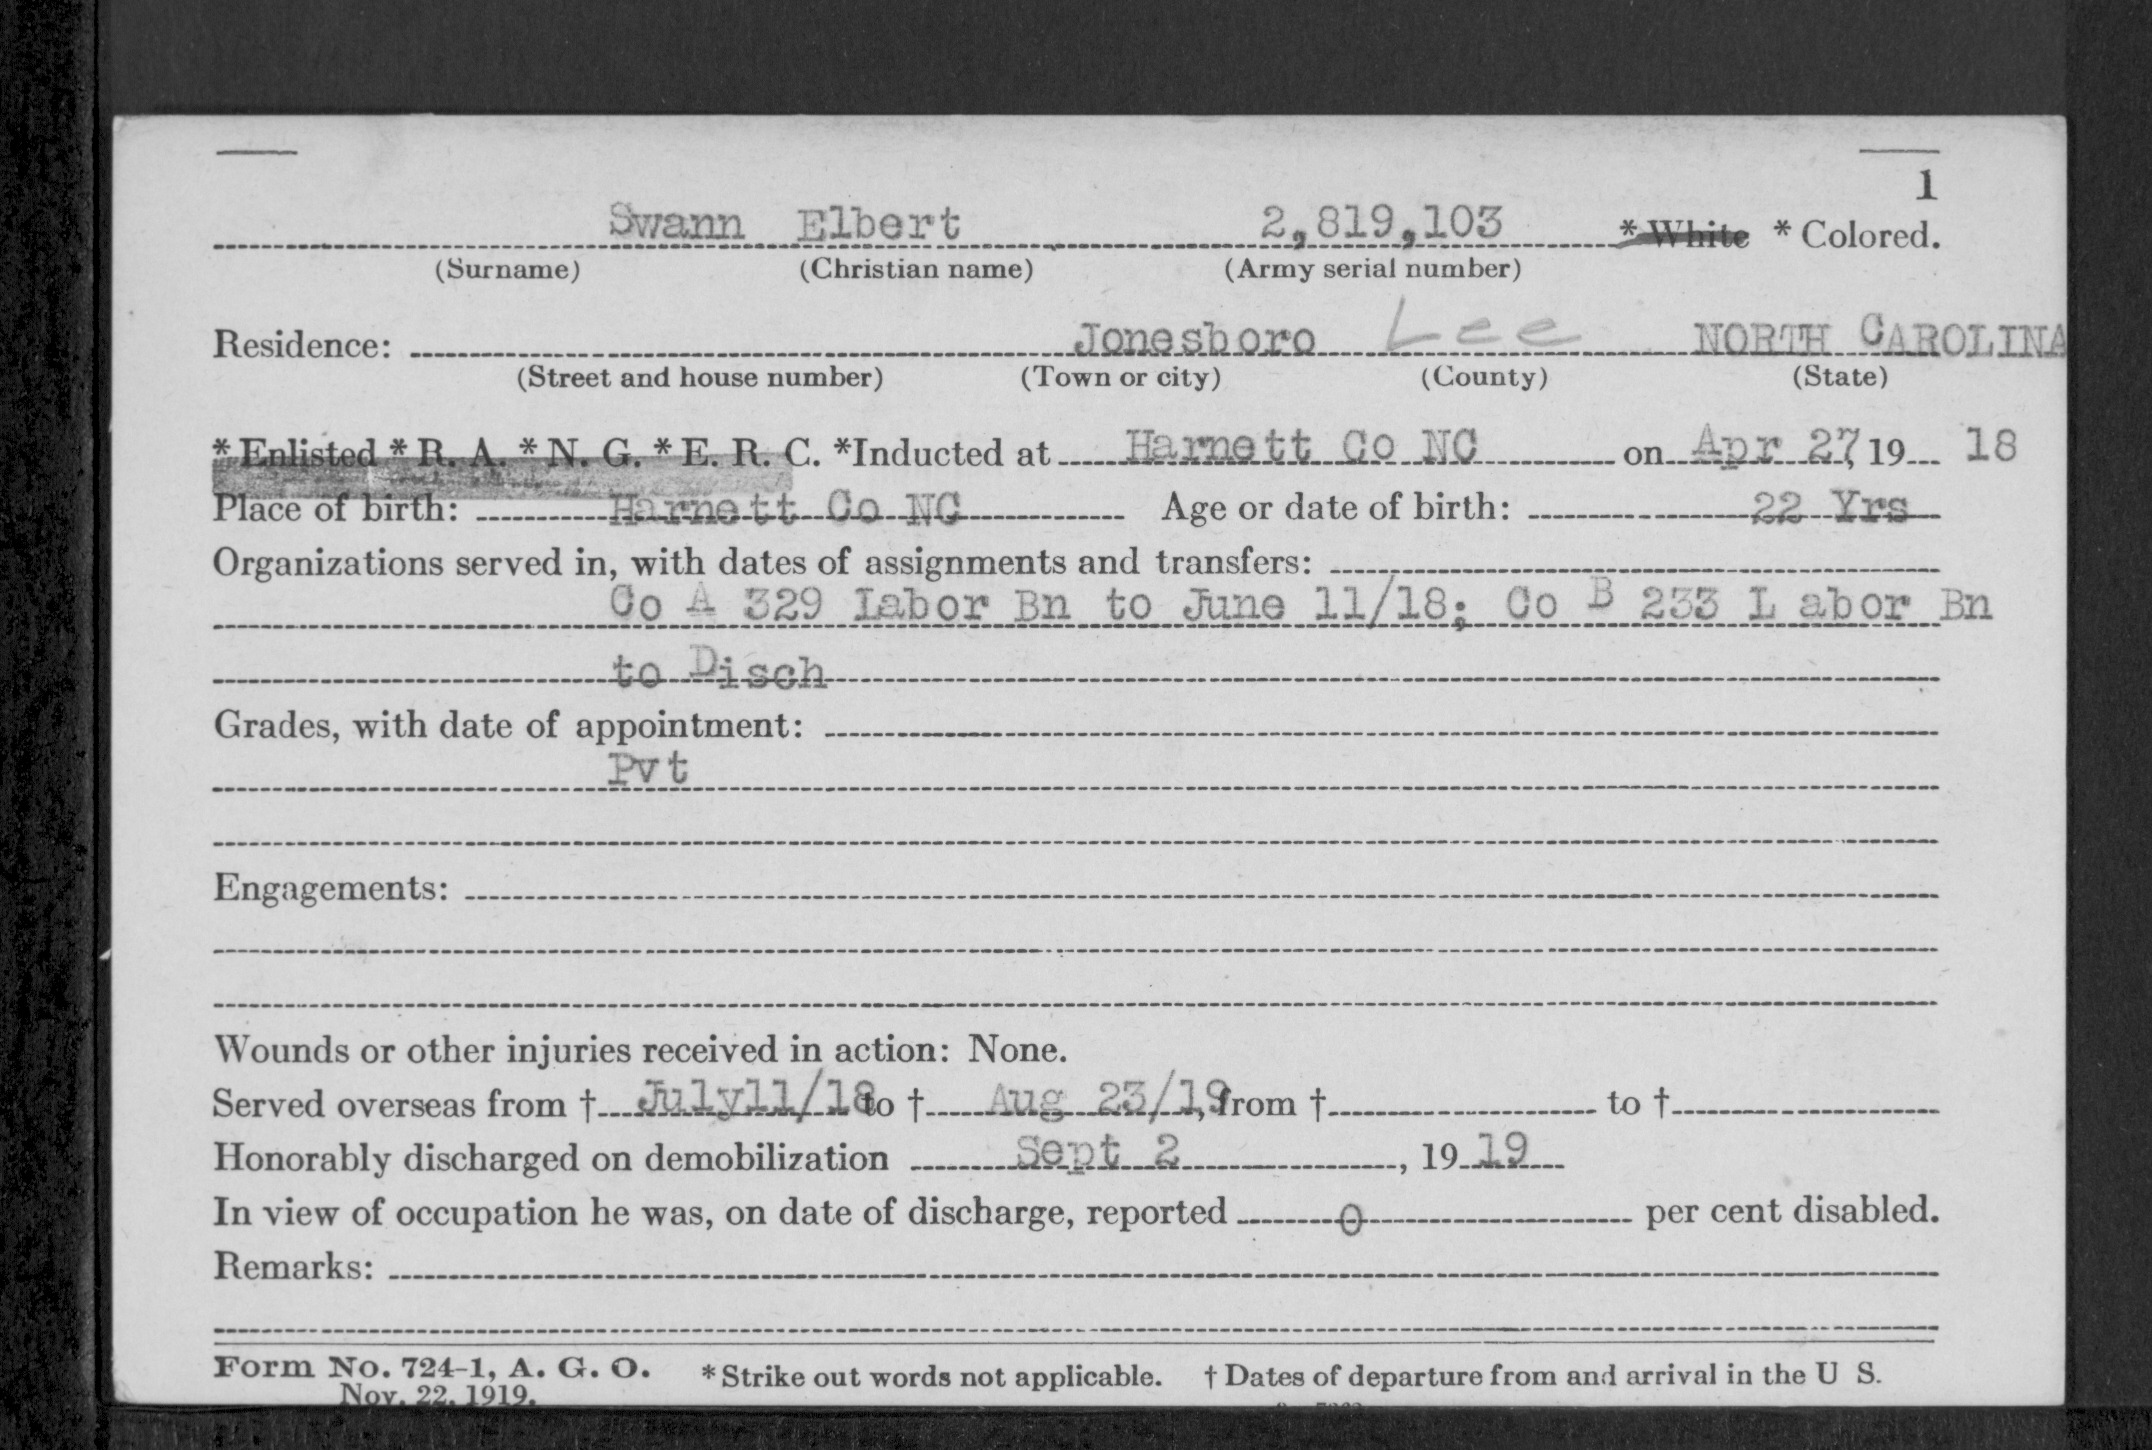 1
Swann Elbert 2,819,103 * White * Colored.
(Surname) (Christian name) (Army serial number)
Residence: Jonesboro Lee NORTH CAROLINA
(Street and house number) (Town or city) (County) (State)
* Enlisted * R. A. * N. G. * E. R. C. *Inducted at Harnett Co NC on Apr 27, 19 18
Place of birth: Harnett Co NC Age or date of birth: 22 Yrs
Organizations served in, with dates of assignments and transfers:
Co A 329 Labor Bn to June 11/18; Co B 233 L abor Bn
to Disch
Grades, with date of appointment:
Pvt
Engagements:
Wounds or other injuries received in action: None.
Served overseas from † July11/18 to † Aug 23/19, from † to †
Honorably discharged on demobilization Sept 2, 19 19
In view of occupation he was, on date of discharge, reported 0 per cent disabled.
Remarks:
Form No. 724-1, A. G. O. * Strike out words not applicable. † Dates of departure from and arrival in the U S.
Nov. 22, 1919.